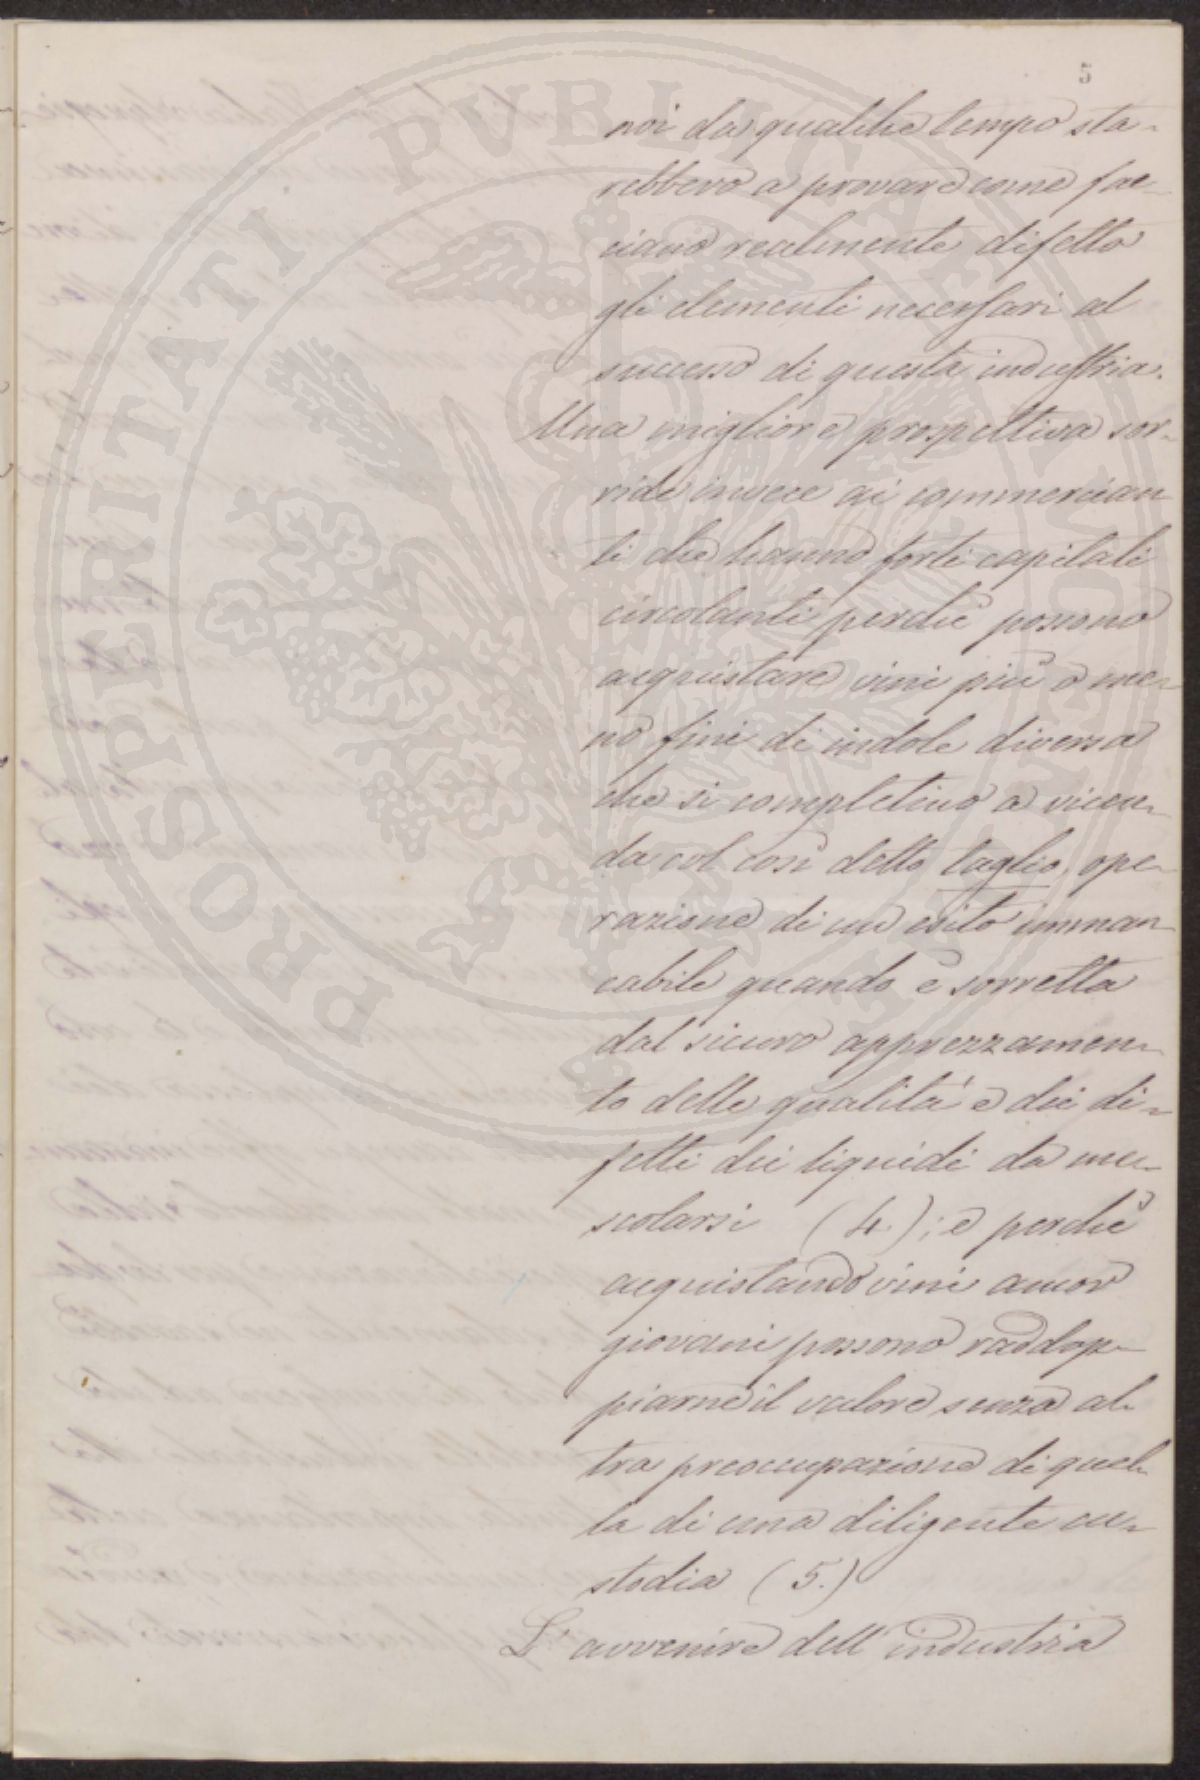 5
noi da qualche tempo sta-
rebbero a provare come fac-
ciano realmente difetto
gli elementi necessari al
successo di questa industria.
Una migliore prospettiva sor-
ride invece ai commercian
ti che hanno forti capitali
circolanti perchè possono
acquistare vini più o me-
no fini di indole diversa
che si completino a vicen-
da col così detto taglio, ope-
razione di un esito imman
cabile quando è sorretta
dal sicuro apprezzamen-
to delle qualità e dei di-
fetti dei liquidi da me-
scolarsi (4.); e perchè
acquistando vini ancor
giovani possono raddop-
piarne il valore senza al-
tra preoccupazione di quel-
la di una diligente cu-
stodia (5.)
L'avvenire dell'industria
PROSPERITATI PUBLICAE